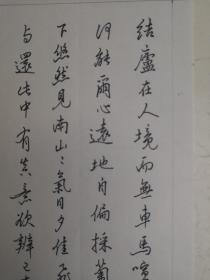 結廬在人境而無車馬喧
何能爾心遠地自偏採菊
下悠然見南山〻氣日夕佳飛
与還此中有真意欲辨已